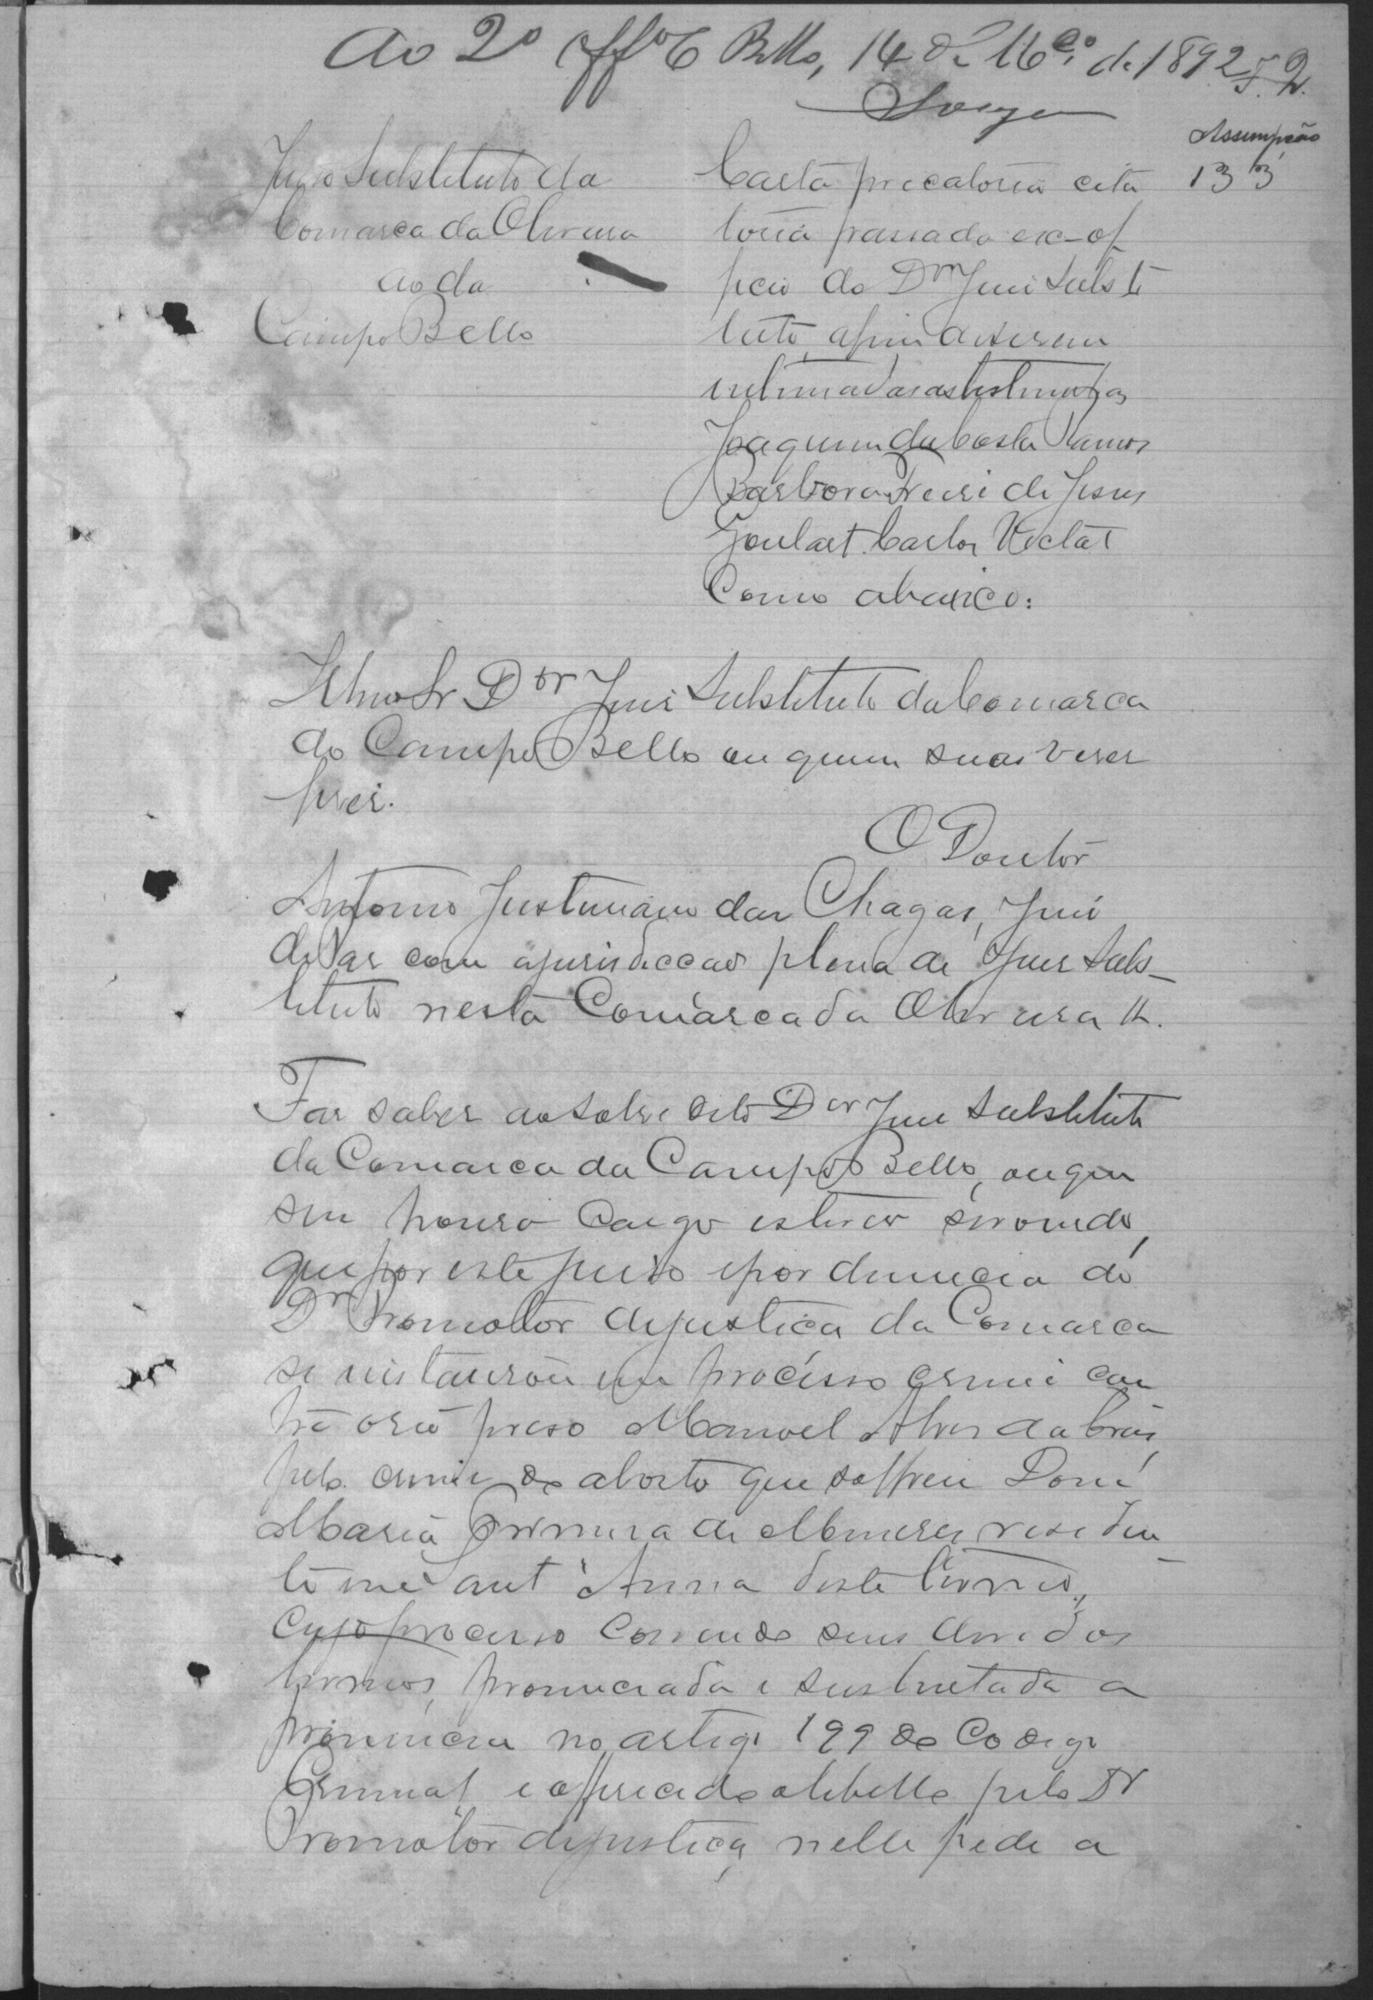 Ao 2º Offº C Bello, 14 de M.ço de 1892
f. 2.
Assumpção
133
Juiso Substituto da
Comarca da Oliveira
ao da
Campo Bello
Carta precatoria cita
toria passada ex-of
ficio do Dor Juiz Substi
tuto, afim de serem
intimadas as testemunhas
Joaquim da Costa Ramos
Barbora de Jesus
Goulart Carlos
Como abaixo:
Illmo Sr Dor Juiz Substituto da Comarca
do Campo Bello ou quem suas veses
fizer.
O Doutor
Antonio Justiniano das Chagas, Juiz
de Paz com a jurisdiccao plena de Juiz Subs-
tituto nesta Comarca da Oliveira &.
Faz saber ao sobre dito Dor Juiz Substituto
da Comarca da Campo Bello, ou quem
seu honroso Cargo estiver servindo,
que por este juiso e por denuncia do
Dr Promotor de justiça da Comarca
se instaurou um processo crime con
tra o reo preso Manoel Alves da Cruz,
pelo crime de aborto que soffreu Dona
Maria de Meneses residen
te em Sant'Anna deste termo,
cujo processo correndo seus devidos
termos, pronunciada e sustentada a
pronuncia no artigo 199 do Codigo
Criminal e offerecido o libello pelo Dr
Promotor de justiça, nelle pede a